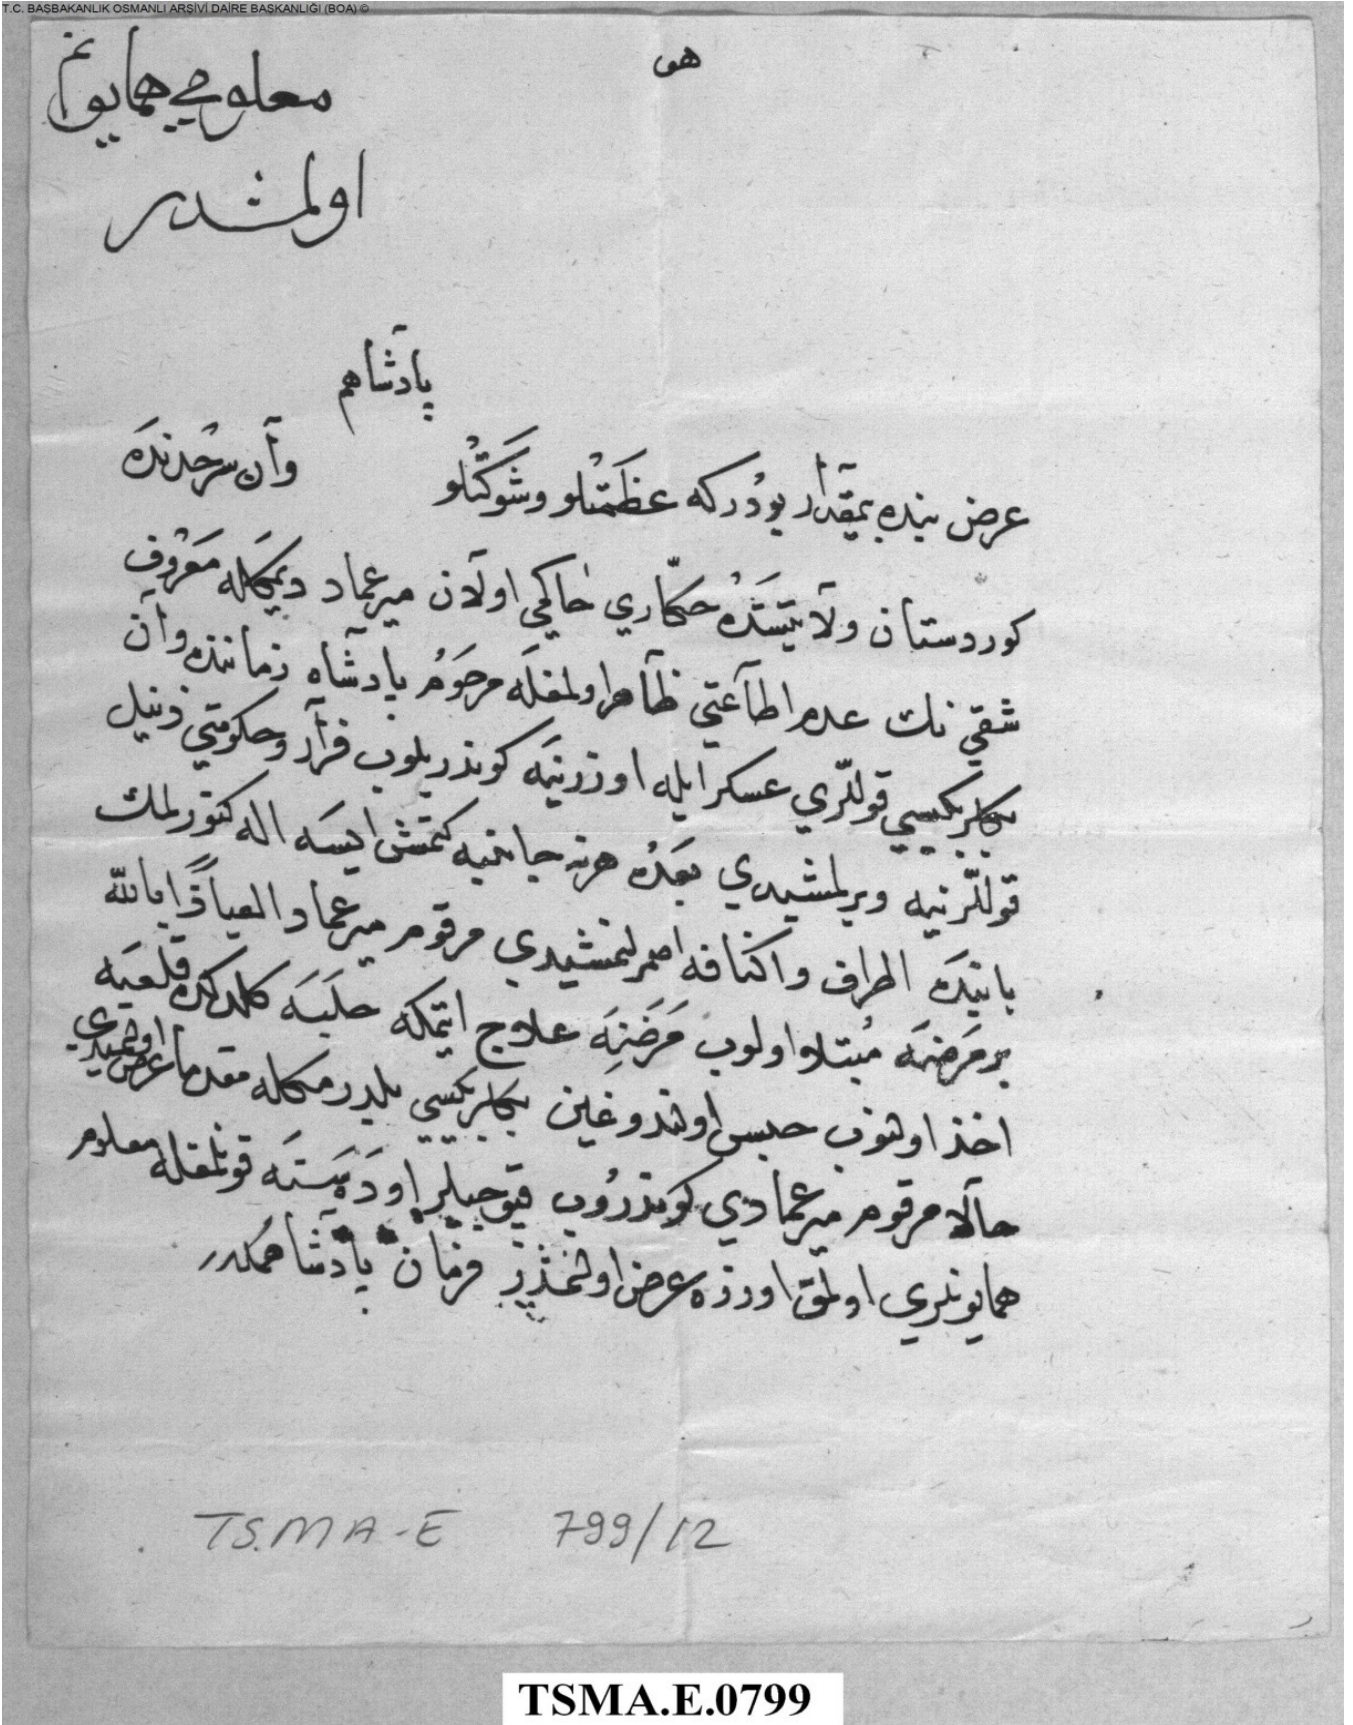 T.C. BAŞBAKANLIK OSMANLI ARŞİVİ DAİRE BAŞKANLIĞI (BOA) ©
هو
معلومی همایونم
اولمشدر
پادشاهم
عرض بنده بیمقدار بودر که عظمتلو وشوکتلو وان سرحدنده
کوردستان ولایتنده حکاری حاکمی اولان میر عماد دیمکله معروف
شقی نك عدم اطاعتی ظاهر اولمغله مرحوم پادشاه زماننده وان
بکلربکیسی قوللری عسکر ایله اوزرینه کوندریلوب فرار وحکومتی زینل
قوللرینه ویرلمشیدی بعده هر نه جانبه کتمش ایسه اله کتورلمك
بابنده اطراف واکنافه امر لنمشیدی مرقوم میر عماد العیاذا بالله
بر مرضه مبتلا اولوب مرضنه علاج ایتمکه حلبه کلدکده قلعیه
اخذ اولنوب حبس اولندوغین بکلربکیسی بلدرمکله مقدما عرض اولنمشیدی
حالا مرقوم میر عمادی کوندروب قپوجیلر اوده سنه قونلمغله معلوم
همایونلری اولمق اوزره عرض اولنمشدر فرمان پادشاهمکدر
TS.MA-E 799/12
TSMA.E.0799